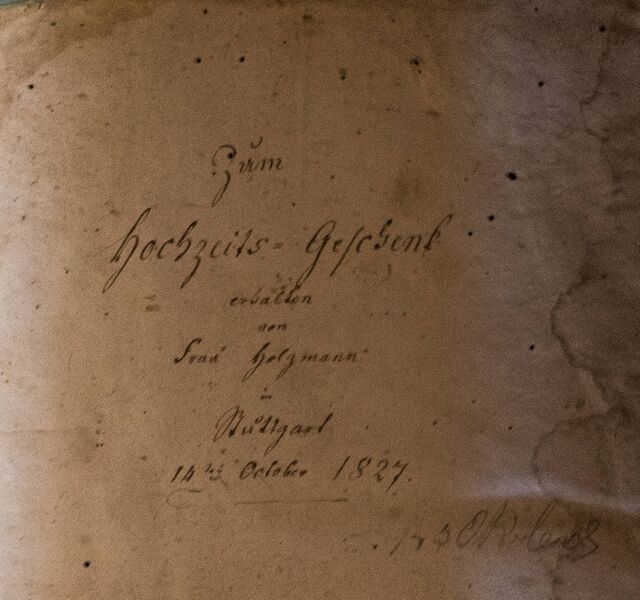 Zum
Hochzeits=Geschenk
erhalten
von
Frau Holzmann
in
Stuttgart
14 October 1827.